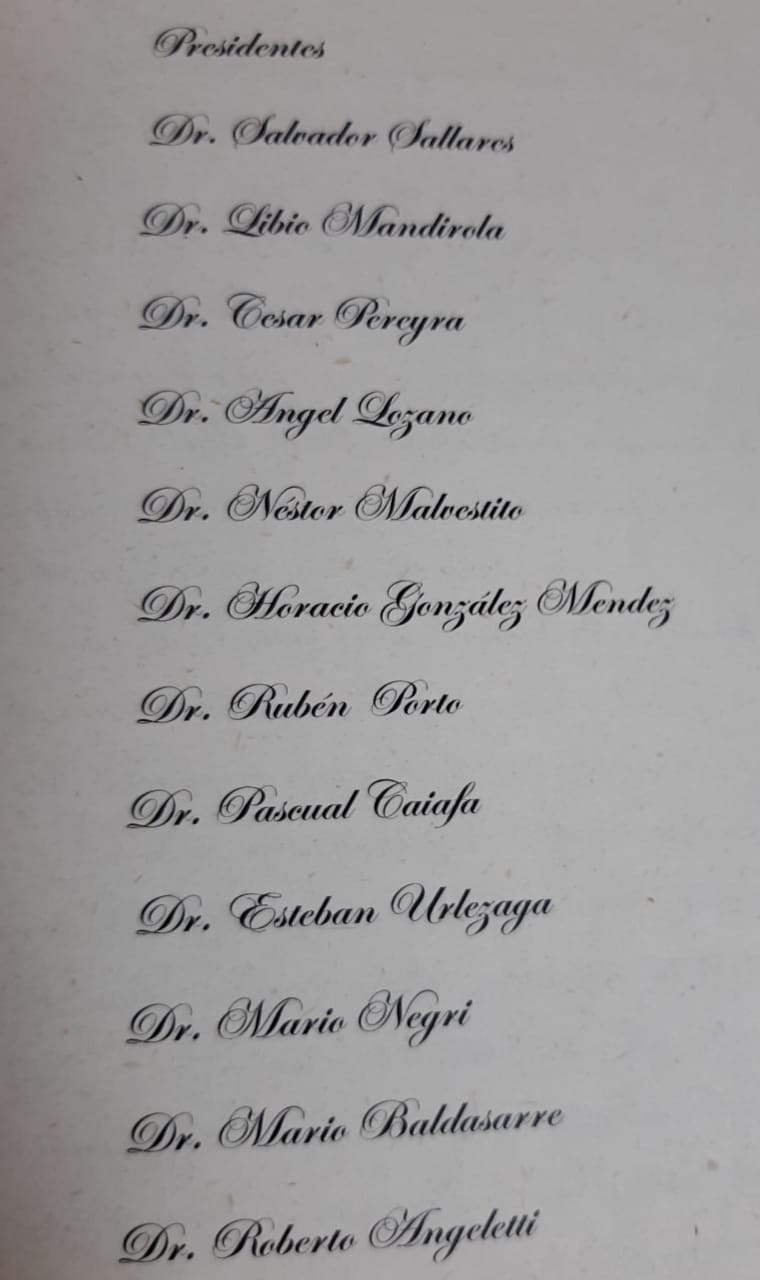 Presidentes
Dr. Salvador Sallares
Dr. Libio Mandirola
Dr. Cesar Pereyra
Dr. Angel Lozano
Dr. Néstor Malvestito
Dr. Horacio González Mendez
Dr. Rubén Porto
Dr. Pascual Caiafa
Dr. Esteban Urlezaga
Dr. Mario Negri
Dr. Mario Baldasarre
Dr. Roberto Angeletti